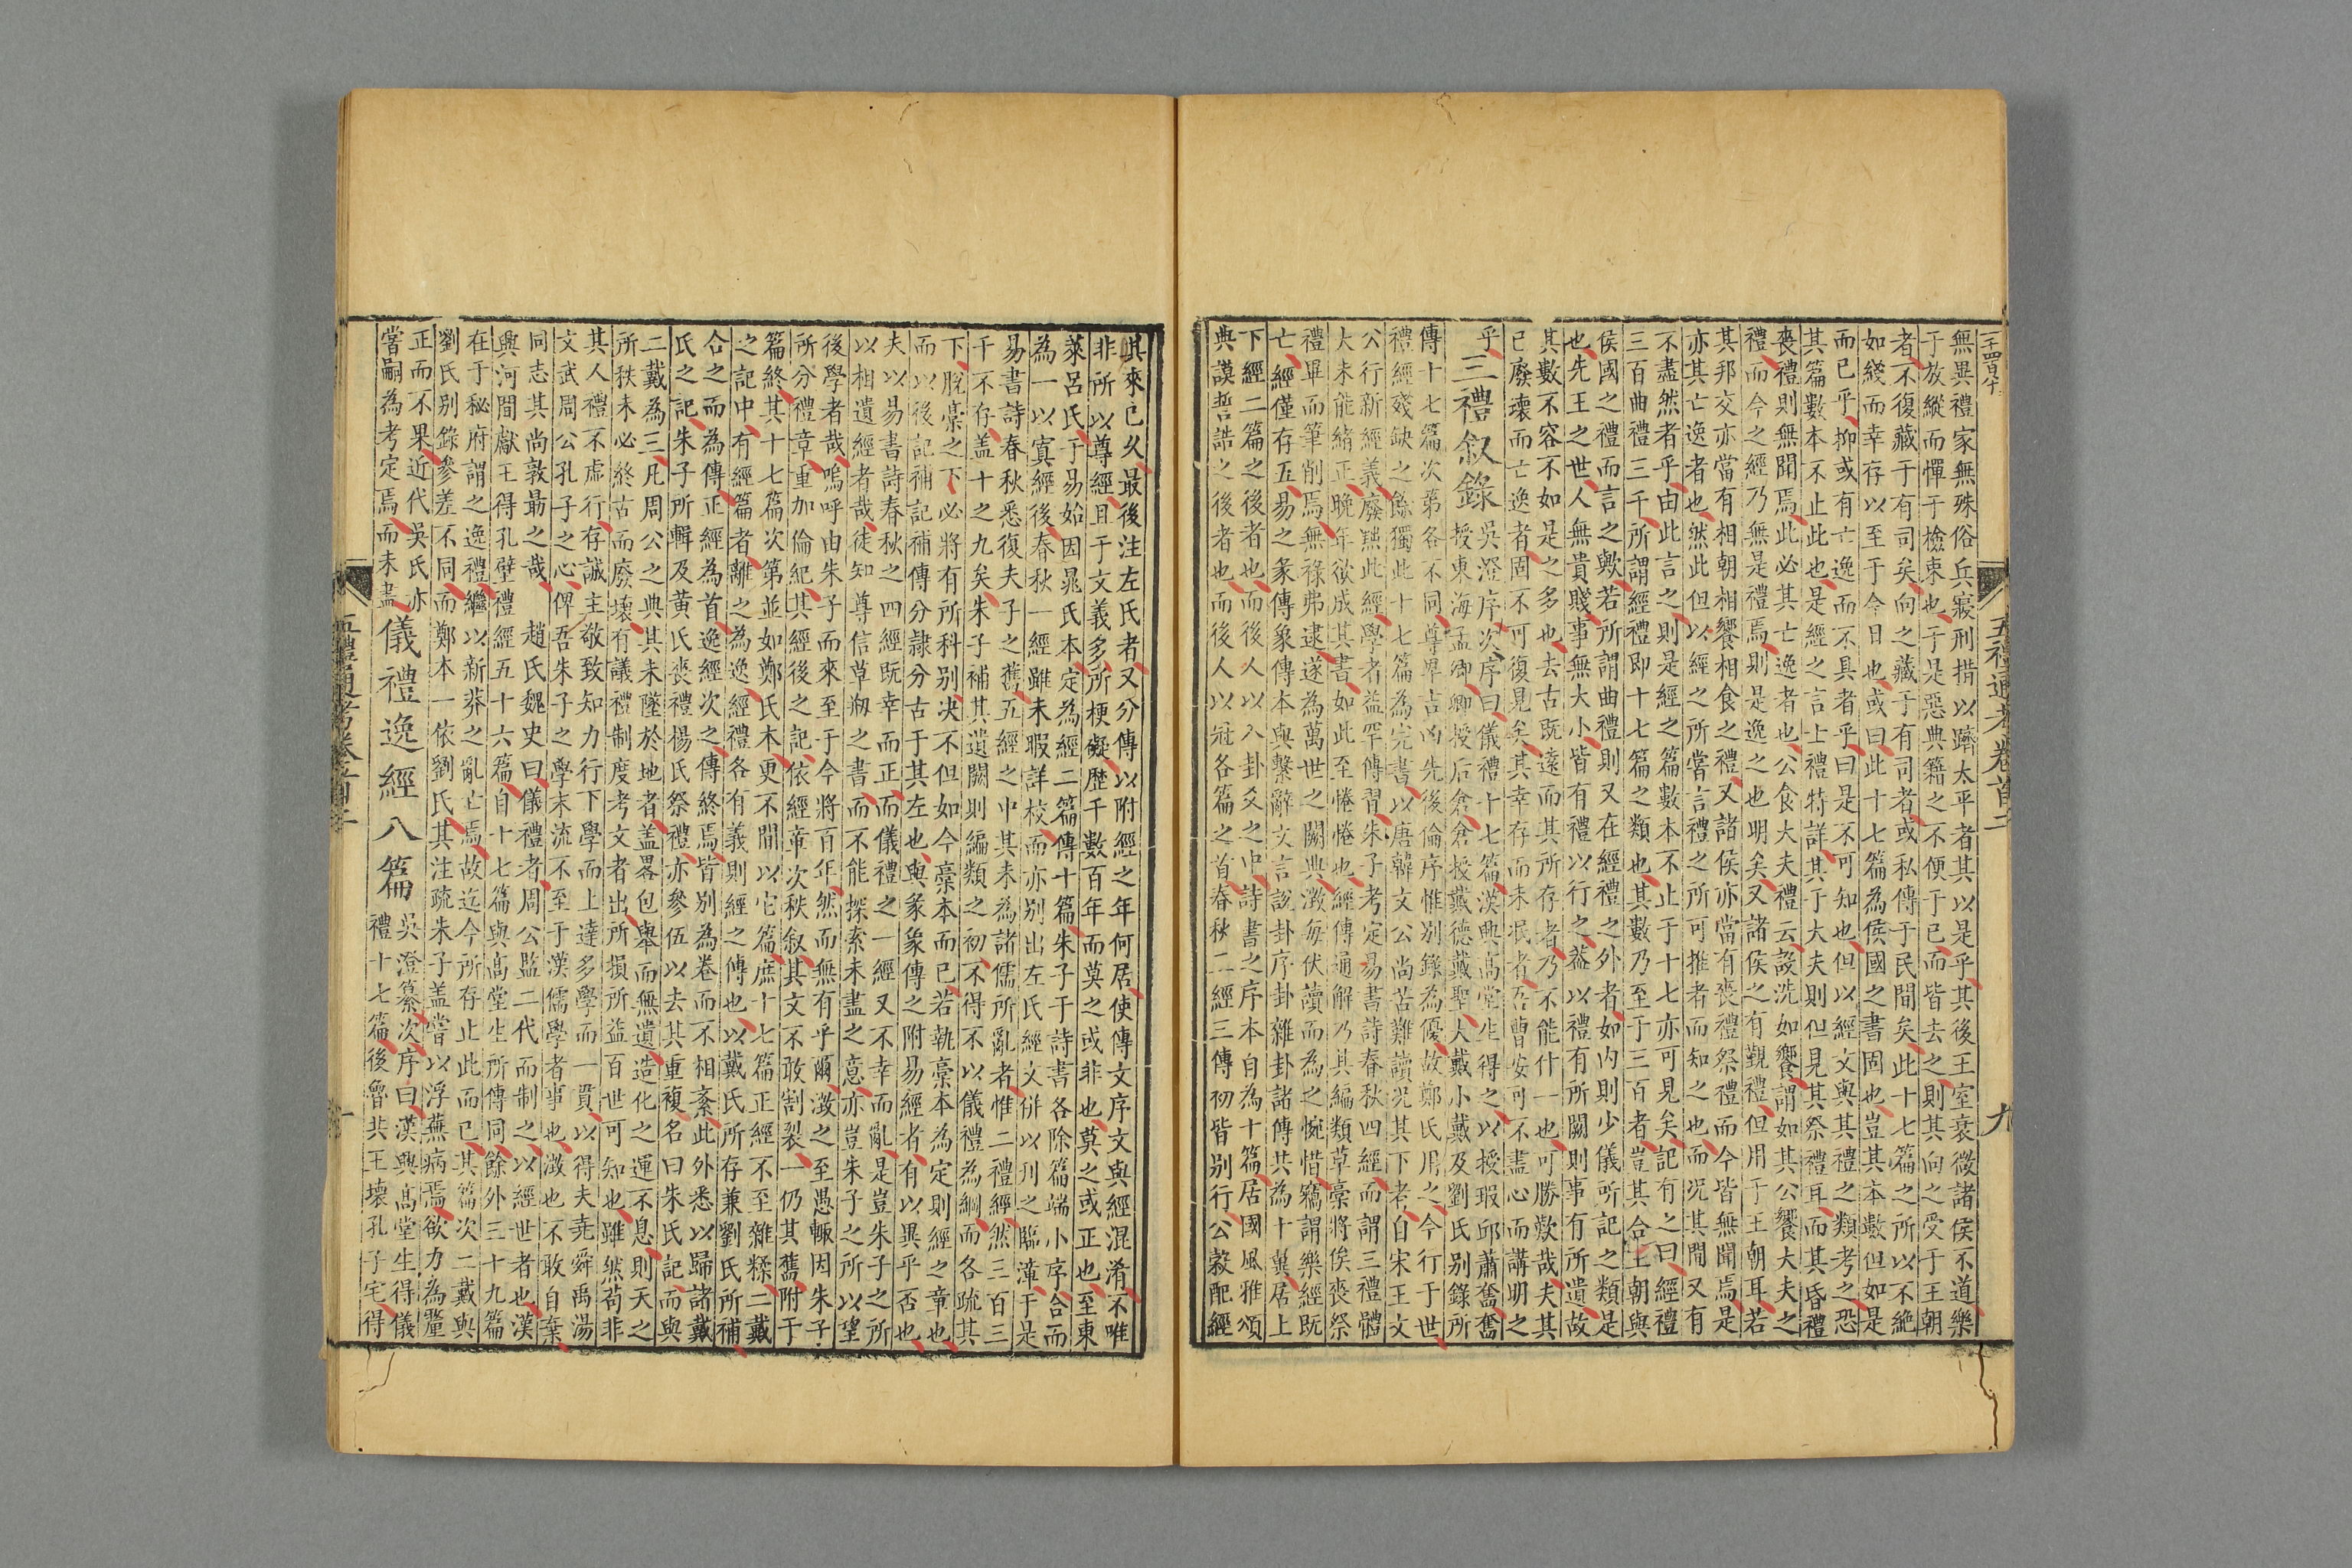 二千四百八十
五禮通考卷首二
九
無異禮家無殊俗兵寢刑措以躋太平者其以是乎其後王室衰微諸侯不道樂
于放縱而憚于檢束也于是惡典籍之不便于已而皆去之則其向之受于王朝
者不復藏于有司矣向之藏于有司者或私傳于民間矣此十七篇之所以不絶
如綫而幸存以至于今日也或曰此十七篇為侯國之書固也豈其本數但如是
而已乎抑或有亡逸而不具者乎曰是不可知也但以經文與其禮之類考之恐
其篇數本不止此也是經之言士禮特詳其于大夫則但見其祭禮耳而其昏禮
喪禮則無聞焉此必其亡逸者也公食大夫禮云設洗如饗謂如其公饗大夫之
禮而今之經乃無是禮焉則是逸之也明矣又諸侯之有覲禮但用于王朝耳若
其邦交亦當有相朝相饗相食之禮又諸侯亦當有喪禮祭禮而今皆無聞焉是
亦其亡逸者也然此但以經之所嘗言禮之所可推者而知之也而况其間又有
不盡然者乎由此言之則是經之篇數本不止于十七亦可見矣記有之曰經禮
三百曲禮三千所謂經禮即十七篇之類也其數乃至于三百者豈其合王朝與
侯國之禮而言之歟若所謂曲禮則又在經禮之外者如内則少儀所記之類是
也先王之世人無貴賤事無大小皆有禮以行之葢以禮有所闕則事有所遺故
其數不容不如是之多也去古既逺而其所存者乃不能什一也可勝歎哉夫其
已廢壊而亡逸者固不可復見矣其幸存而未泯者吾曹安可不盡心而講明之
乎
三禮叙錄
吳澄序次序曰儀禮十七篇漢興髙堂生得之以授瑕邱蕭奮奮
授東海孟卿卿授后倉倉授戴德戴聖大戴小戴及劉氏别錄所
傳十七篇次第各不同尊卑吉凶先後倫序惟别錄為優故鄭氏用之今行于世
禮經殘缺之餘獨此十七篇為完書以唐韓文公尚苦難讀况其下者自宋王文
公行新經義廢黜此經學者益罕傳習朱子考定易書詩春秋四經而謂三禮體
大未能緒正晚年欲成其書如此至惓惓也經傳通解乃其編類草藁將俟喪祭
禮畢而筆削焉無祿弗逮遂為萬世之闕典澂每伏讀而為之惋惜竊謂樂經既
亡經僅存五易之彖傳象傳本與繫辭文言說卦序卦雜卦諸傳共為十翼居上
下經二篇之後者也而後人以入卦爻之中詩書之序本自為十篇居國風雅頌
典謨誓誥之後者也而後人以冠各篇之首春秋二經三傳初皆别行公榖配經
其來已久最後注左氏者又分傳以附經之年何居使傳文序文與經混淆不唯
非所以尊經且于文義多所梗礙歷千數百年而莫之或非也莫之或正也至東
萊呂氏于易始因晁氏本定為經二篇傳十篇朱子于詩書各除篇端小序合而
為一以寘經後春秋一經雖未暇詳校而亦别出左氏經文併以刋之臨漳于是
易書詩春秋悉復夫子之舊五經之中其未為諸儒所亂者惟二禮經然三百三
千不存葢十之九矣朱子補其遺闕則編類之初不得不以儀禮為綱而各疏其
下脫藁之下必將有所科别决不但如今藁本而已若執藁本為定則經之章也
而以後記補傳分隸分古于其左也與彖象傳之附易經者有以異乎否也
夫以易書詩春秋之四經既幸而正而儀禮之一經又不幸而亂是豈朱子之所
以相遺經者哉徒知尊信草剏之書而不能探索未盡之意亦豈朱子之所以望
後學者哉嗚呼由朱子而來至于今將百年然而無有乎爾澂之至愚輒因朱子
所分禮章重加倫紀其經後之記依經章次秩叙其文不敢割裂一仍其舊附于
篇終其十七篇次第並如鄭氏本更不間以它篇庶十七篇正經不至雜糅二戴
之記中有經篇者離之為逸經禮各有義則經之傳也以戴氏所存兼劉氏所補
合之而為傳正經為首逸經次之傳終焉皆别為卷而不相紊此外悉以歸諸戴
氏之記朱子所輯及黄氏喪禮楊氏祭禮亦參伍以去其重複名曰朱氏記而與
二戴為三凡周公之典其未墜於地者葢畧包舉而無遺造化之運不息則天之
所秩未必終古而廢壊有議禮制度考文者出所損所益百世可知也雖然苟非
其人禮不虛行存誠主敬致知力行下學而上達多學而一貫以得夫堯舜禹湯
文武周公孔子之心俾吾朱子之學末流不至于漢儒學者事也澂也不敢自棄
同志其尚敦朂之哉　趙氏魏史曰儀禮者周公監二代而制之以經世者也漢
興河間獻王得孔壁禮經五十六篇自十七篇與髙堂生所傳同餘外三十九篇
在于秘府謂之逸禮繼以新莽之亂亡焉故迄今所存止此而已其篇次二戴與
劉氏别錄參差不同而鄭本一依劉氏其注疏朱子葢嘗以浮蕪病焉欲力為釐
正而不果近代吳氏亦嘗嗣為考定焉而未盡
儀禮逸經八篇
吳澄纂次序曰漢興髙堂生得儀
禮十七篇後魯共王壊孔子宅得